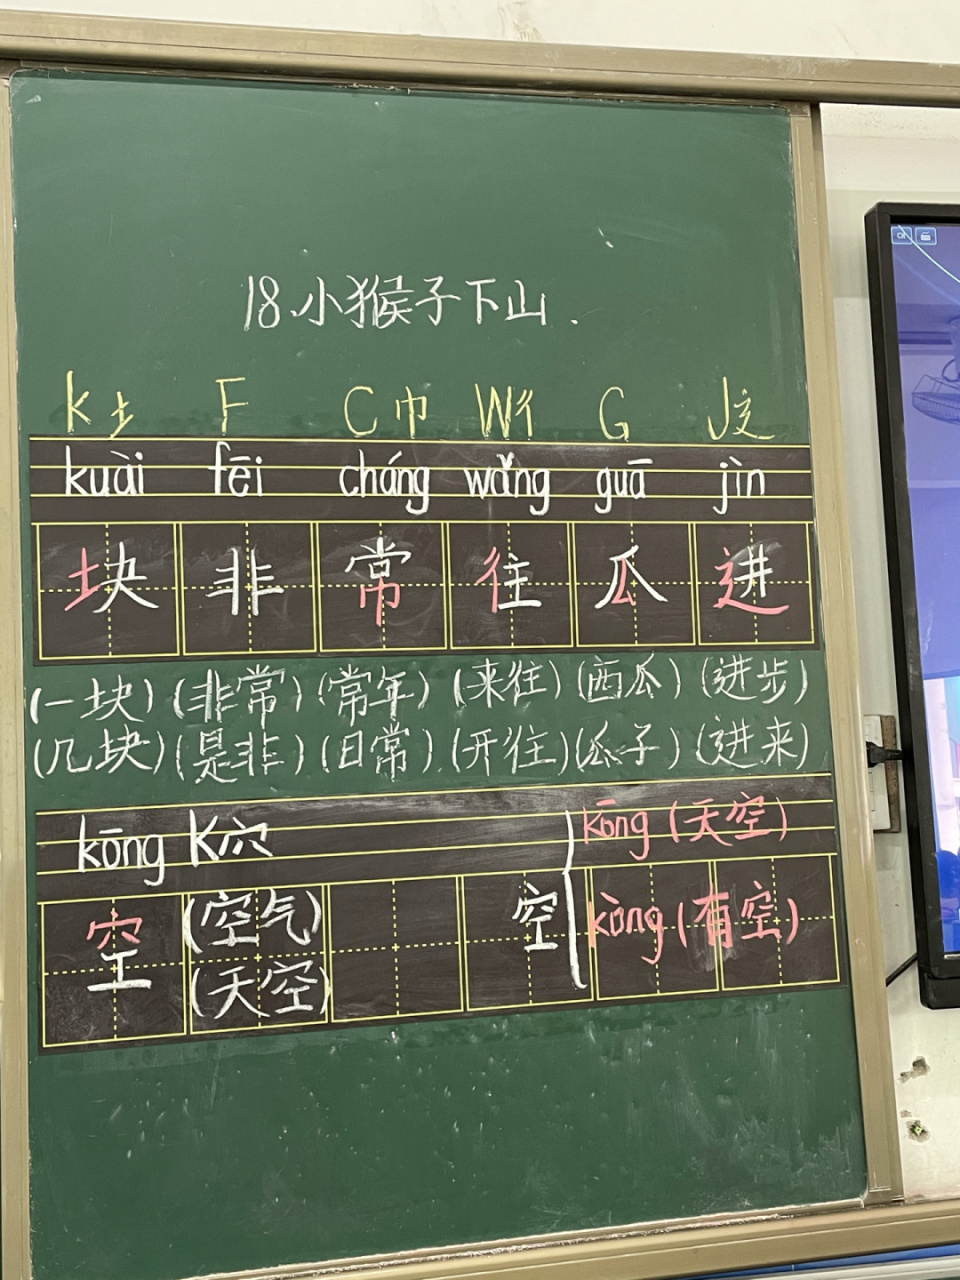 18.小猴子下山.
K土 F C巾 W彳 G J辶
kuài fēi cháng wǎng guā jìn
块 非 常 往 瓜 进
(一块) (非常) (常年) (来往) (西瓜) (进步)
(几块) (是非) (日常) (开往) (瓜子) (进来)
kōng K穴 kōng (天空)
空 (空气) 空 kòng (有空)
(天空)